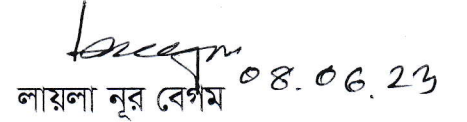 08.06.23
লায়লা নূর বেগম